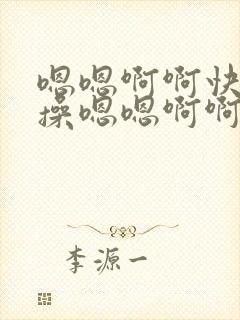 嗯嗯啊啊快
操嗯嗯啊啊
李源一